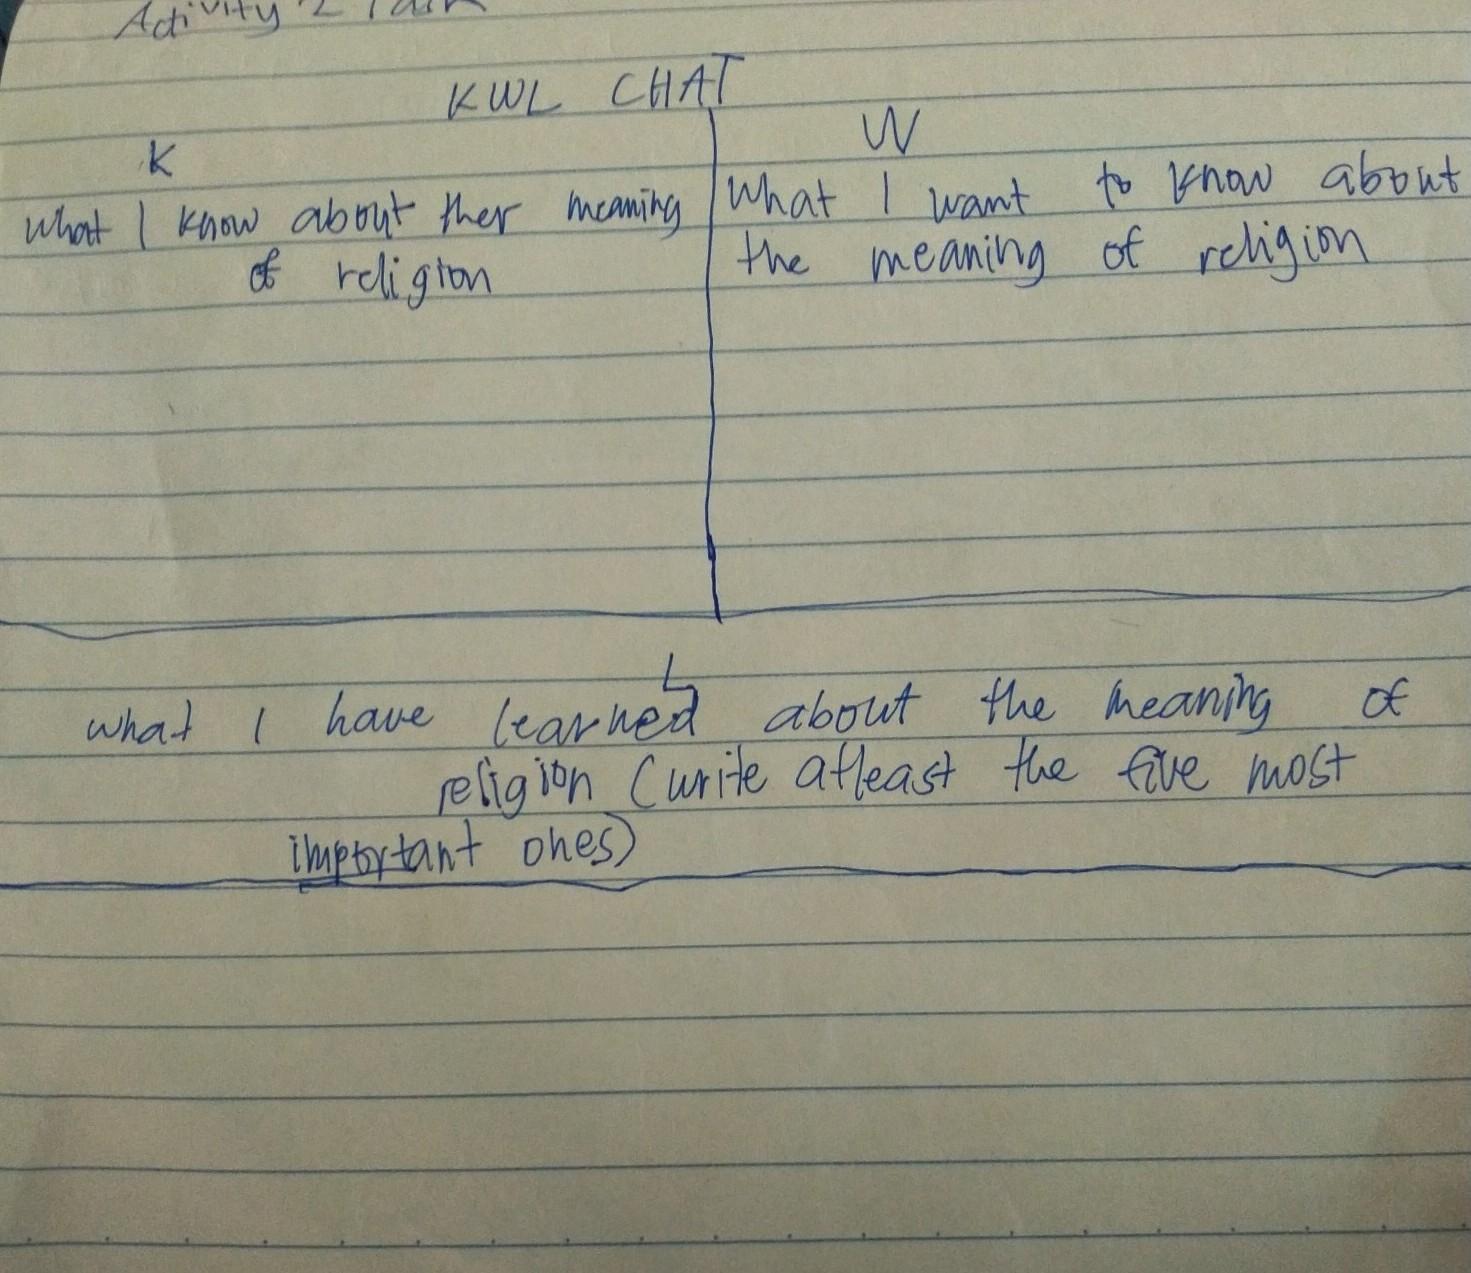 Activity 2
KWL CHAT
K
What I know about ther meaning
of religion
W
What I want to know about
the meaning of religion
L
what I have learned about the meaning of
religion (write atleast the five most
important ones)